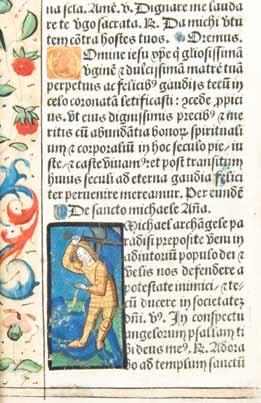 na scła. Amē. ℣. Dignare me lauda
re te v̄go sacrata. ℟. Da michi v̄tu
tem cōtra hostes tuos. Oremus.
Omine iesu xp̄e q̄ gliosissimā
v̄ginē ⁊ dulcissimā matrē tuā
perpetuis ac felicib⁹ gaudijs tecū in
celo coronatā letificasti: ꝯcede ,ppici
us. vt eius dignissimis precib⁹ ⁊ me
ritis cū abundātia honoꝝ spirituali
um ⁊ corporaliū in hoc seculo pie, iu
ste, ⁊ caste viuam⁹: et post transitum
huius seculi ad eterna gaudia felici
ter peruenire mereamur. Per eundē
De sancto michaele Aña.
Michael archāgele pa
radisi preposite veni in
adiutoriū populo dei ⁊
velis nos defendere a
potestate inimici, ⁊ te
cū ducere in societatē
dñi. ℣. In conspectu
angelorum psallam ti
bi deus me⁹. ℟. Adora
bo ad templum sanctū